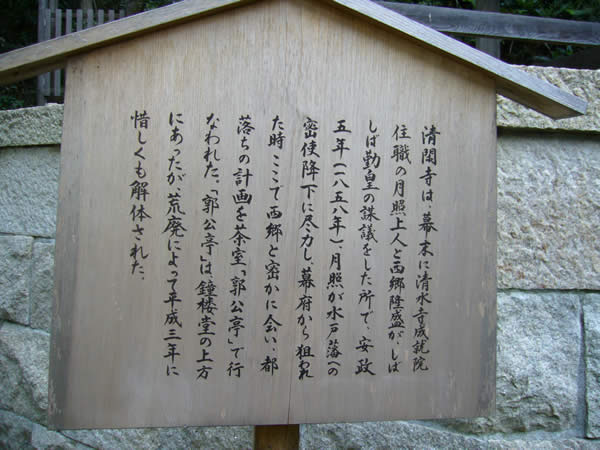 清閑寺は、幕末に清水寺成就院
住職の月照上人と西郷隆盛が、しば
しば勤皇の謀議をした所で、安政
五年(一八五八年)、月照が水戸藩への
密使降下に尽力し、幕府から狙われ
た時、ここで西郷と密かに会い、都
落ちの計画を茶室「郭公亭」で行
なわれた。「郭公亭」は、鐘楼堂の上方
にあったが、荒廃によって平成三年に
惜しくも解体された。